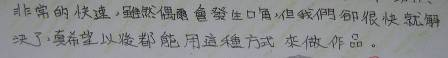 非常的快速，雖然偶爾會發生口角，但我們卻很快就解
決了，真希望以後都能用這種方式來做作品。